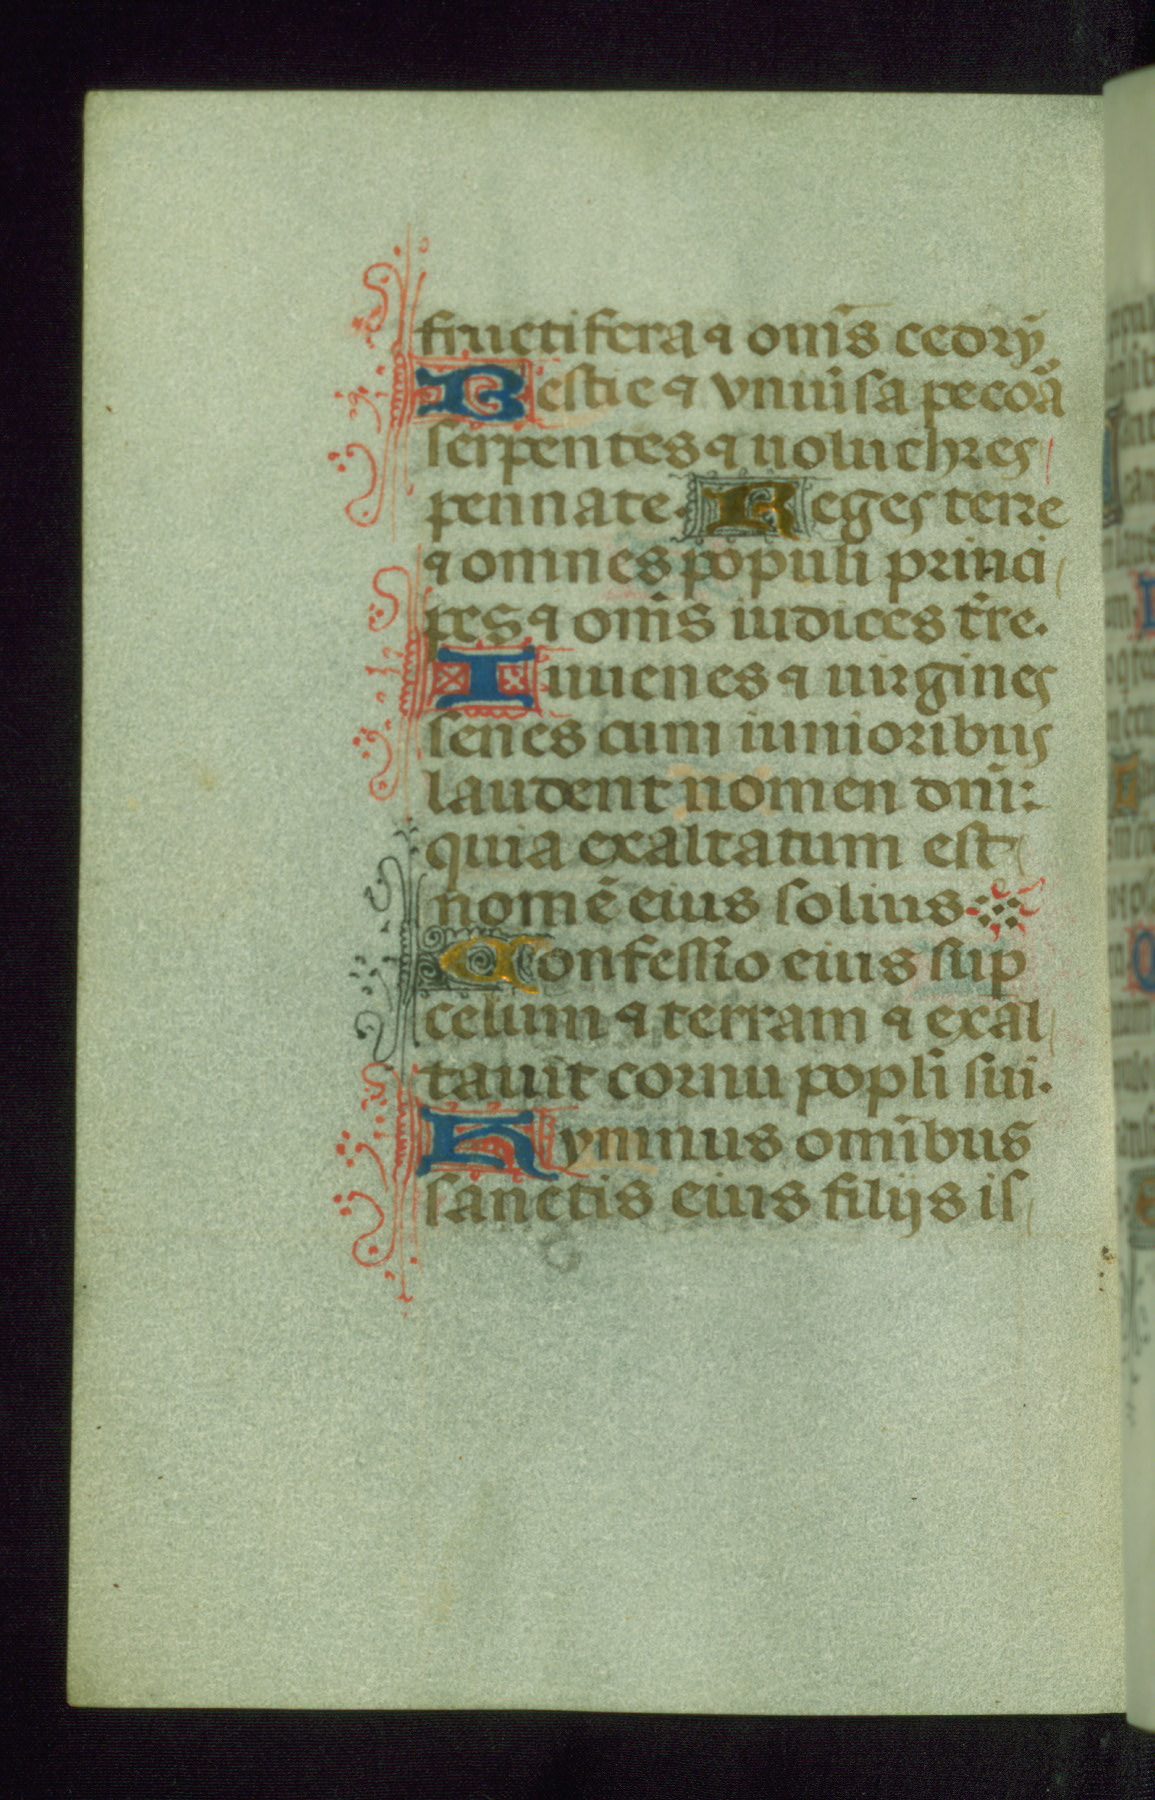 fructifera ⁊ om̄s cedrȳ
Bestie ⁊ vniūsa pecoꝛa
serpentes ⁊ uoluchres
pennate. Reges terre
⁊ omnes populi princi
pes ⁊ om̄s iudices t̄re.
Iuuenes ⁊ uirgines
senes cum iunioribus
laudent nomen dn̄i:
quia exaltatum est
nomē eius solius
Confessio eius sup
celum ⁊ terram ⁊ exal
tauit cornu popl̄i sui.
Hymnus om̄ibus
sanctis eius filijs is